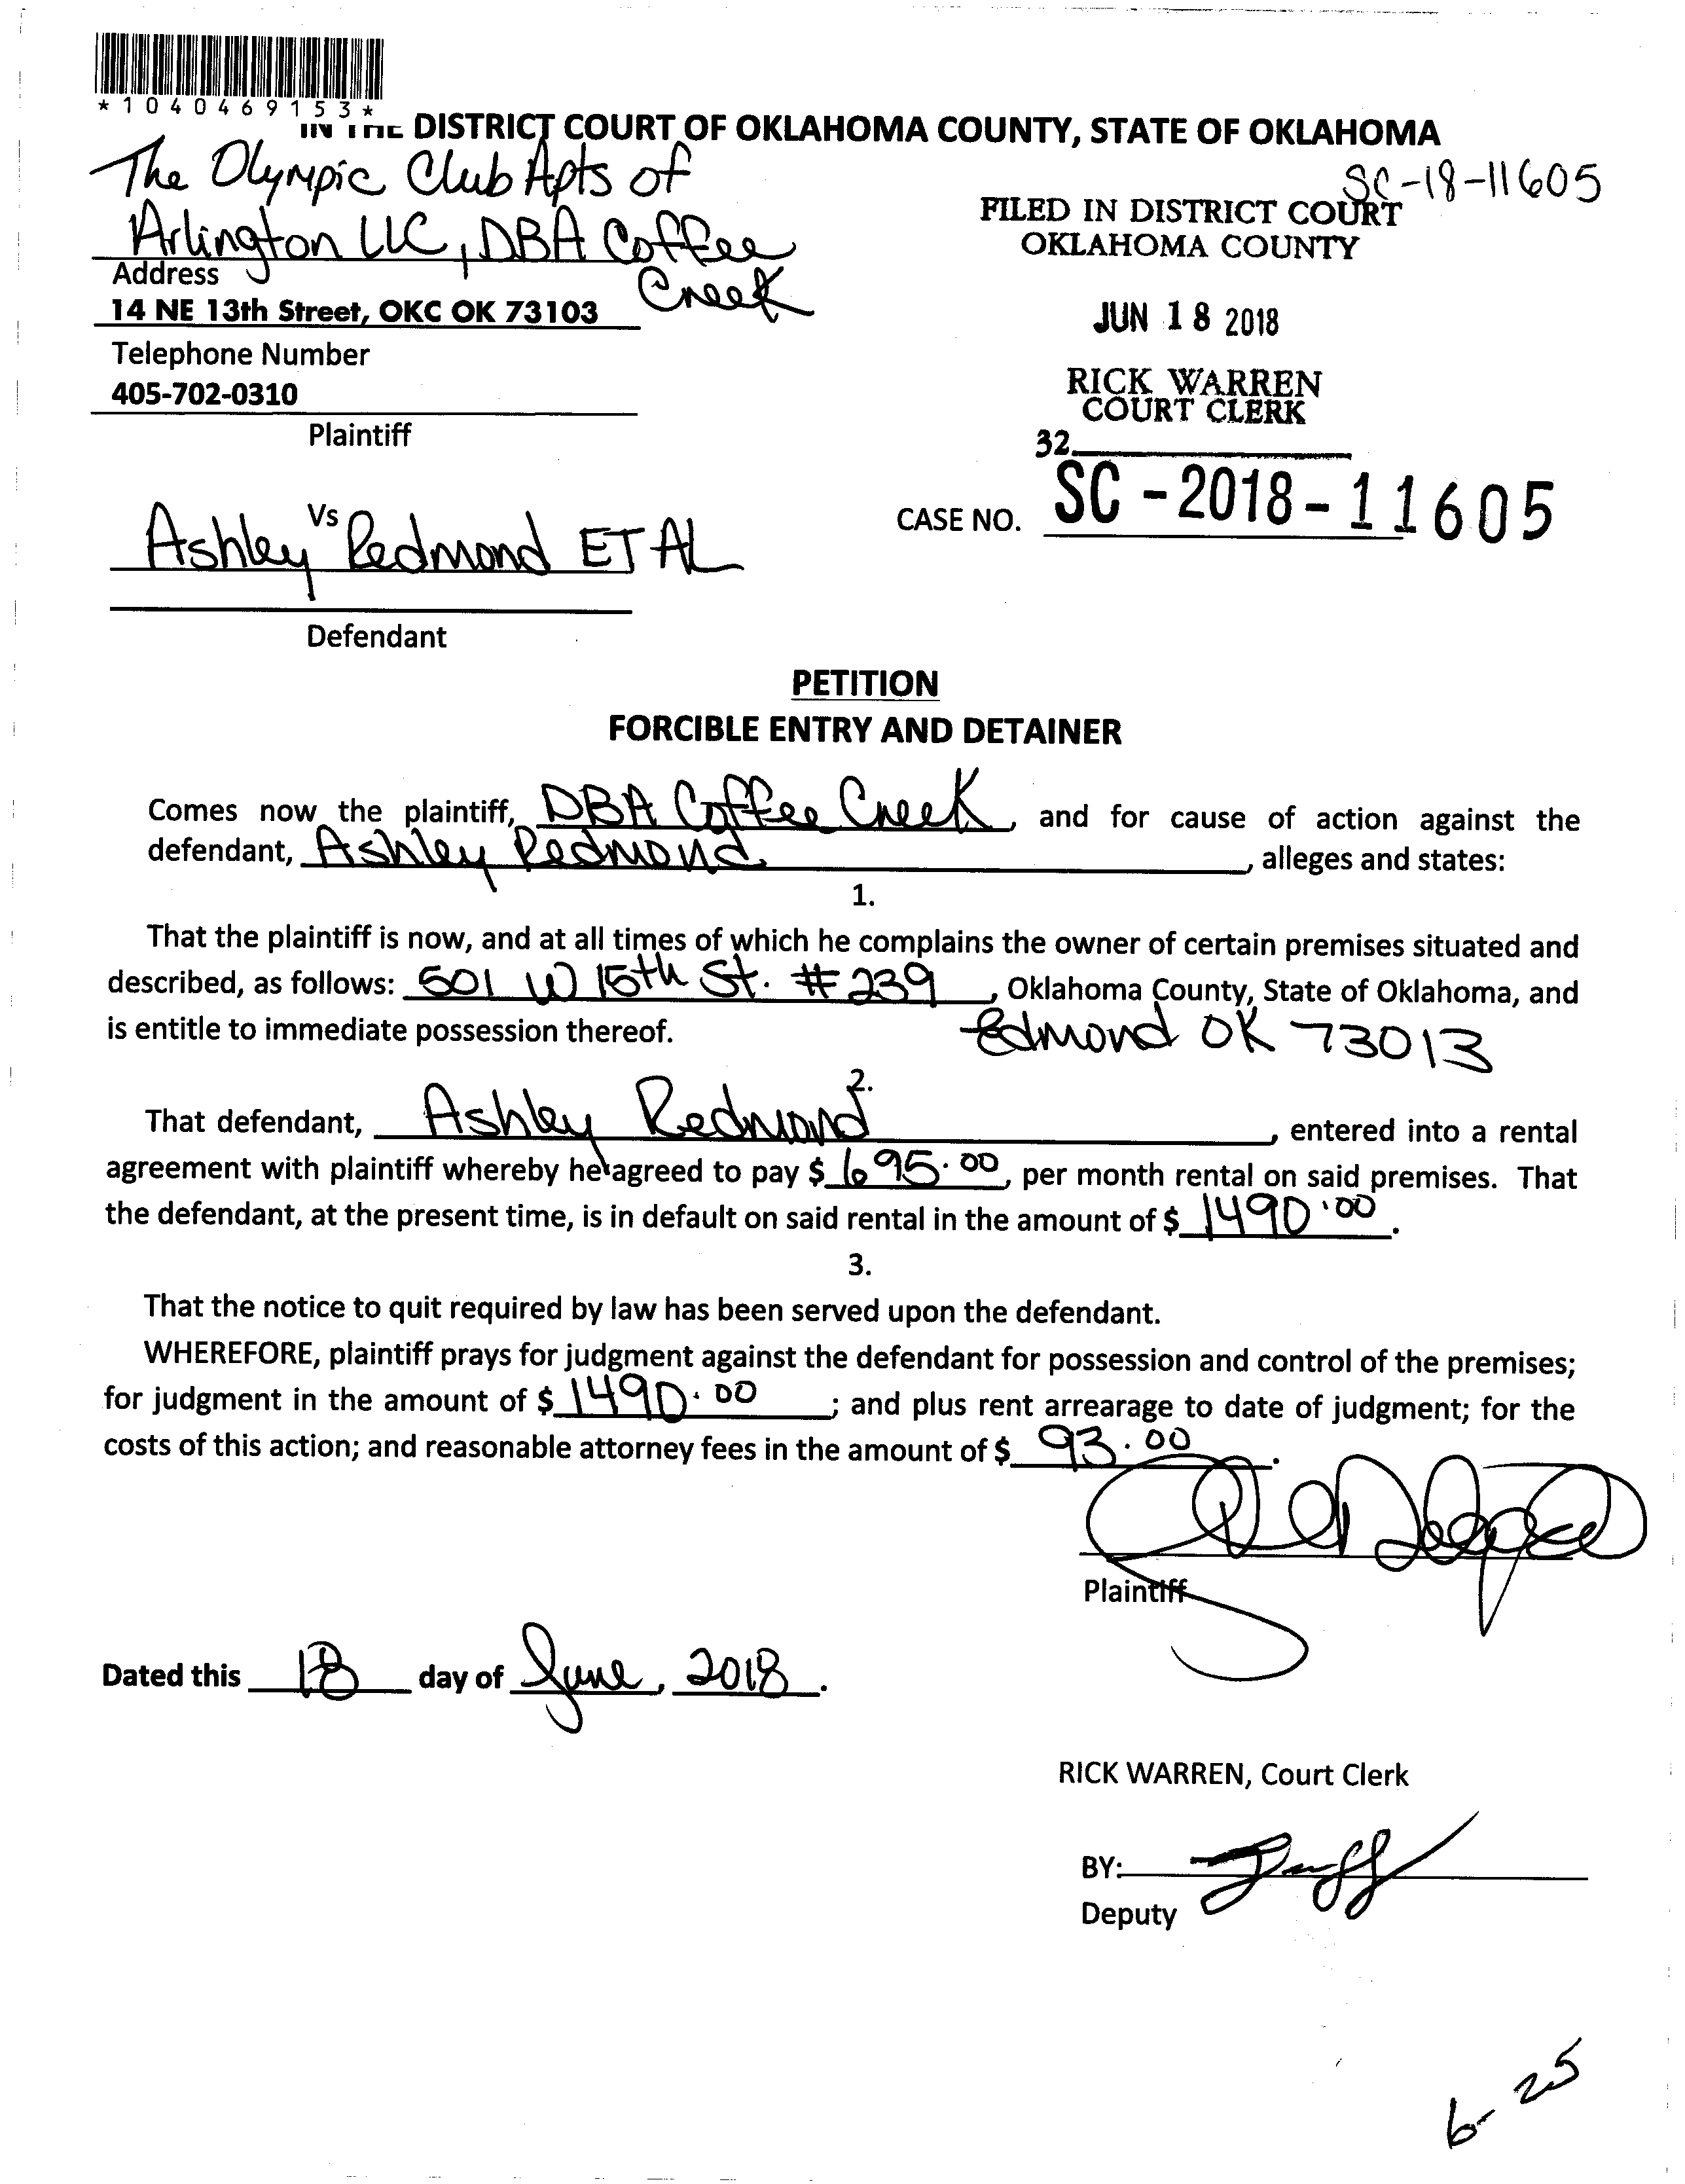 *1040469153*
IN THE DISTRICT COURT OF OKLAHOMA COUNTY, STATE OF OKLAHOMA
The Olympic Club Apts of
Arlington LLC, DBA Coffee
Creek
Address
14 NE 13th Street, OKC OK 73103
Telephone Number
405-702-0310
Plaintiff
SC-18-11605
FILED IN DISTRICT COURT
OKLAHOMA COUNTY
JUN 18 2018
RICK WARREN
COURT CLERK
32
CASE NO. SC-2018-11605
Vs
Ashley Redmond ET AL
Defendant
PETITION
FORCIBLE ENTRY AND DETAINER
Comes now the plaintiff, DBA Coffee Creek, and for cause of action against the
defendant, Ashley Redmond, alleges and states:
1.
That the plaintiff is now, and at all times of which he complains the owner of certain premises situated and
described, as follows: 501 W 15th St. #239, Oklahoma County, State of Oklahoma, and
is entitle to immediate possession thereof. Edmond OK 73013
2.
That defendant, Ashley Redmond, entered into a rental
agreement with plaintiff whereby he agreed to pay $ 695.00, per month rental on said premises. That
the defendant, at the present time, is in default on said rental in the amount of $ 1490.00.
3.
That the notice to quit required by law has been served upon the defendant.
WHEREFORE, plaintiff prays for judgment against the defendant for possession and control of the premises;
for judgment in the amount of $ 1490.00; and plus rent arrearage to date of judgment; for the
costs of this action; and reasonable attorney fees in the amount of $ 93.00.
Plaintiff
Dated this 18 day of June, 2018.
RICK WARREN, Court Clerk
BY:
Deputy
6-25